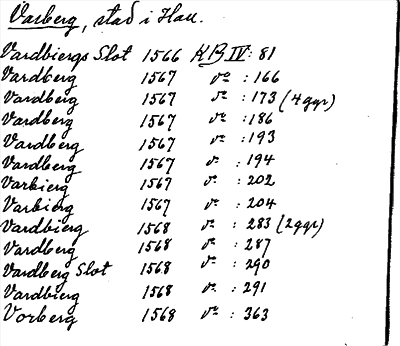 Varberg, stad i Hall.
Vardbiergs Slot 1566 KB IV: 81
Vardberg 1567 sa : 166
Vardberg 1567 sa : 173 (4 ggr)
Vardberg 1567 sa : 186
Vardberg 1567 sa : 193
Vardberg 1567 sa : 194
Varbierg 1567 sa : 202
Varbierg 1567 sa : 204
Vardbierg 1568 sa : 283 (2 ggr)
Vardberg 1568 sa : 287
Vardberg Slot 1568 sa : 290
Vardbierg 1568 sa : 291
Vorberg 1568 sa : 363